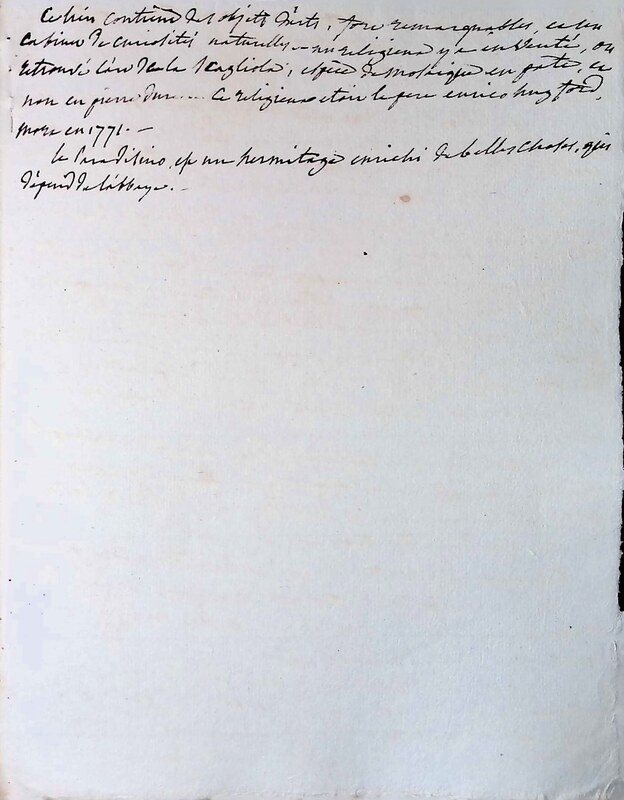 Ce lieu contient des objets d'arts, fort remarquables, et un
cabinet de curiosités naturelles – un religieux y a inventé, ou
retrouvé l'art de la Scagliola, espèce de mosaïque en pate, et
non en pierre dure..... Ce religieux etoit le pere enrico hugford,
mort en 1771. –
le Paradisino, est un hermitage enrichi de belles choses, qui
dépend de l'abbaye. –